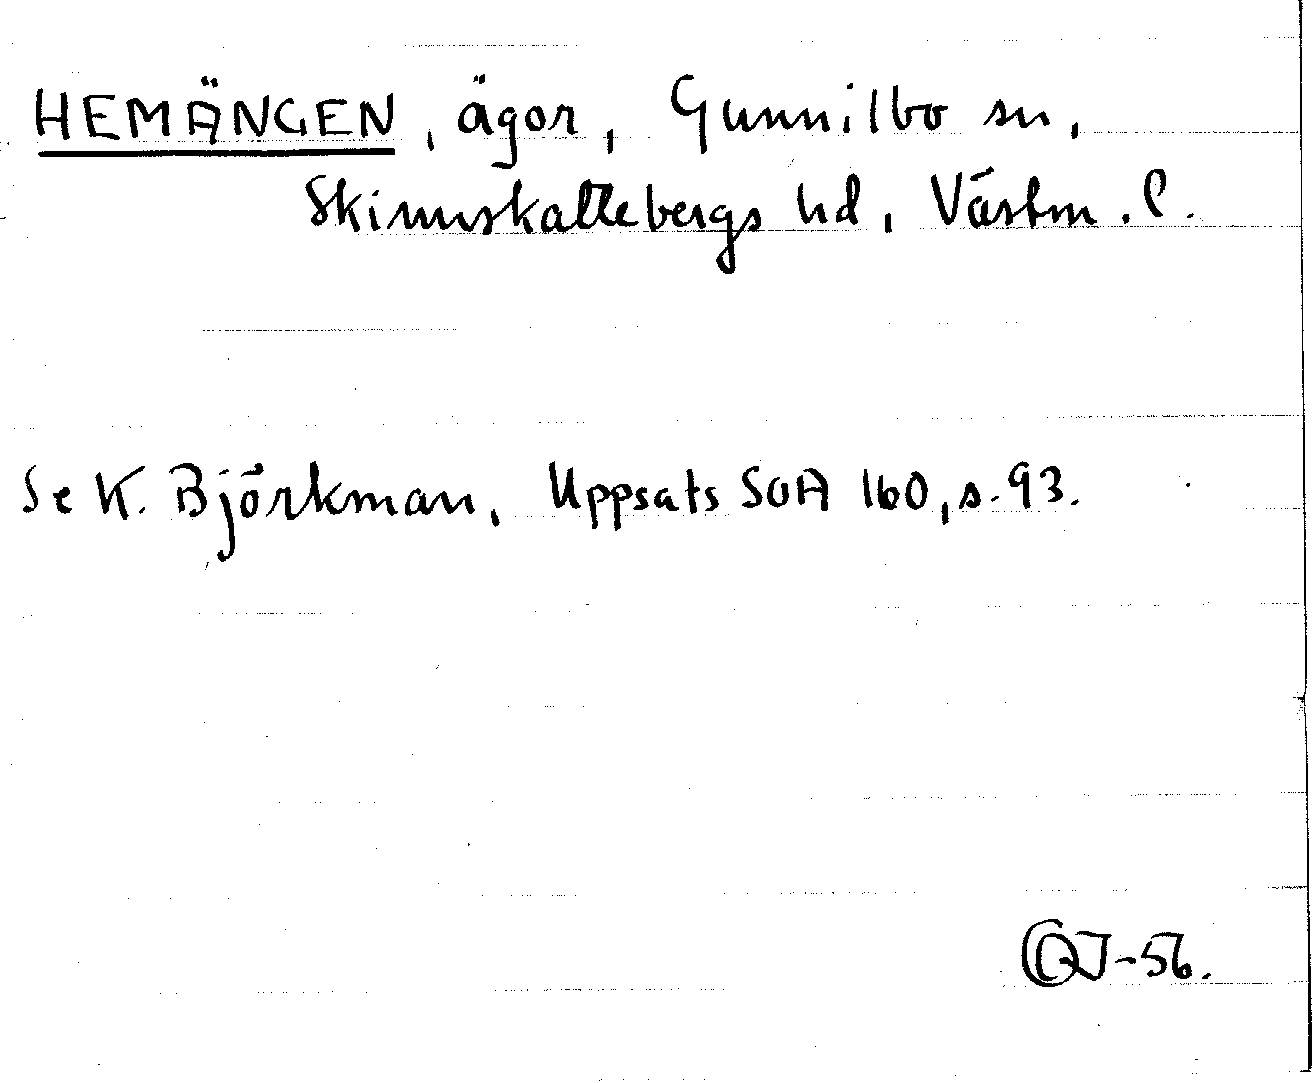 HEMÄNGEN, ägor, Gunnilbo sn,
Skinnskattebergs hd, Västm. l.
Se K. Björkman, Uppsats SOA 160, s. 93.
-56.